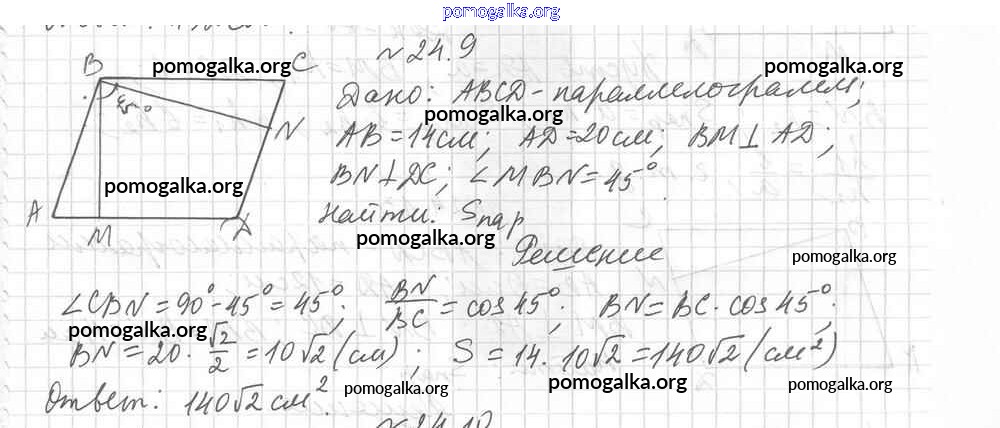 pomogalka.org
№24.9
B pomogalka.org C pomogalka.org
Дано: ABCD - параллелограмм;
pomogalka.org
45°
N
AB = 14 см; AD = 20 см; BM ⊥ AD;
BN ⊥ DC; ∠MBN = 45°
pomogalka.org
A M Д
Найти: Sпар
pomogalka.org
Решение
pomogalka.org
∠CBN = 90° - 45° = 45°; BN/BC = cos 45°; BN = BC · cos 45°;
pomogalka.org
BN = 20 · √2/2 = 10√2 (см); S = 14 · 10√2 = 140√2 (см²)
pomogalka.org pomogalka.org pomogalka.org
Ответ: 140√2 см².
№24.10